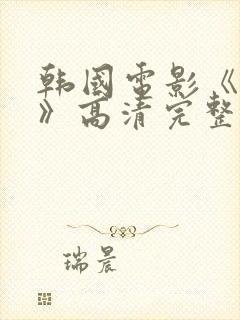 韩國電影《
》高清完整
瑞晨